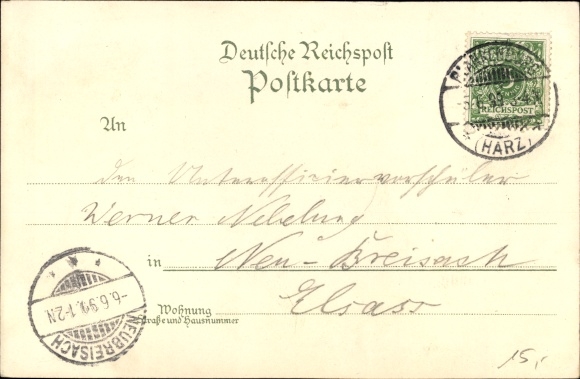 Deutsche Reichspost
Postkarte
REICHSPOST
(HARZ)
An
den Unteroffiziervorschüler
Werner Nebelung
in Neu-Breisach
Elsass
Wohnung
Straße und Hausnummer
-6.6.99.1-2N
NEUBREISACH
15,-